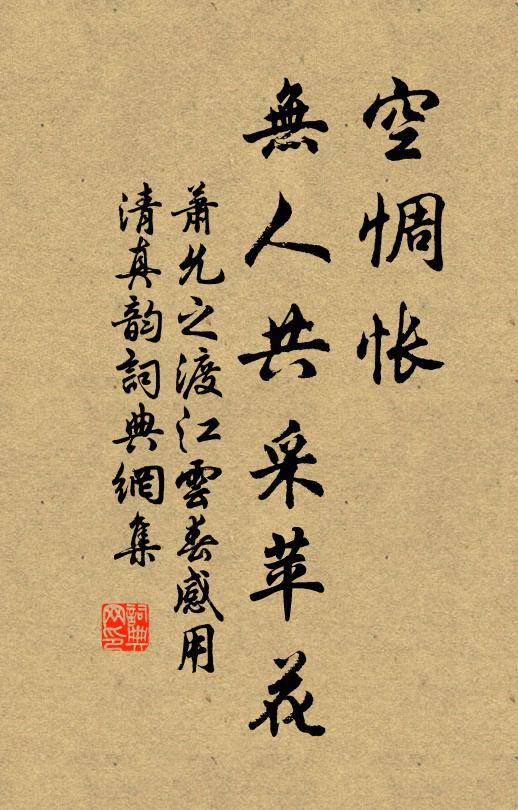 空惆怅
無人共采苹花
萧允之渡江雲春感用
清真韵詞典網集
詞典网印